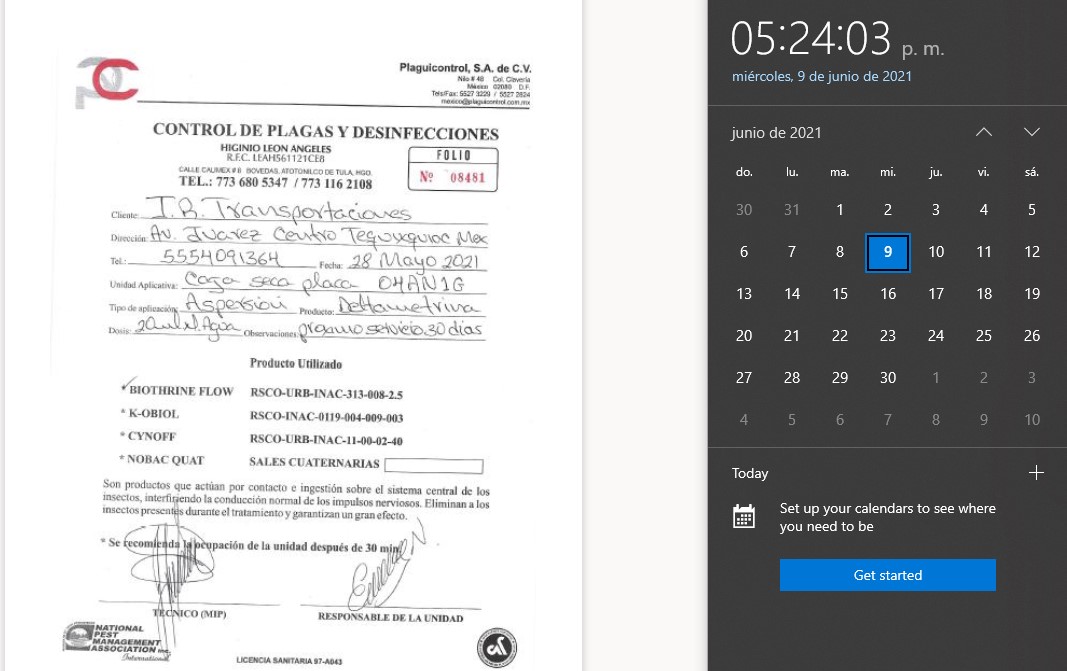 Plaguicontrol, S.A. de C.V.
Nilo # 48 Col. Clavería
México 02080 D.F.
Tels/Fax: 5527 3229 / 5527 2824
mexico@plaguicontrol.com.mx
CONTROL DE PLAGAS Y DESINFECCIONES
HIGINIO LEON ANGELES
R.F.C. LEAH561121CE8
CALLE CAUMEX # 8 BOVEDAS, ATOTONILCO DE TULA, HGO.
TEL.: 773 680 5347 / 773 116 2108
FOLIO
Nº 08481
Cliente: I.R. Transportaciones
Dirección: Av. Juarez Centro Tequixquioc Mex
Tel.: 5554091364 Fecha: 28 Mayo 2021
Unidad Aplicativa: Caja seca placa 04AN1G
Tipo de aplicación: Aspersión Producto: Deltametrina
Dosis: 20ml Agua Observaciones: servicio 30 dias
Producto Utilizado
* BIOTHRINE FLOW RSCO-URB-INAC-313-008-2.5
* K-OBIOL RSCO-INAC-0119-004-009-003
* CYNOFF RSCO-URB-INAC-11-00-02-40
* NOBAC QUAT SALES CUATERNARIAS
Son productos que actúan por contacto e ingestión sobre el sistema central de los
insectos, interfiriendo la conducción normal de los impulsos nerviosos. Eliminan a los
insectos presentes durante el tratamiento y garantizan un gran efecto.
* Se recomienda la ocupación de la unidad después de 30 min.
TÉCNICO (MIP)
RESPONSABLE DE LA UNIDAD
NATIONAL
PEST
MANAGEMENT
ASSOCIATION Inc.
International
LICENCIA SANITARIA 97-A043
05:24:03 p. m.
miércoles, 9 de junio de 2021
junio de 2021
do. lu. ma. mi. ju. vi. sá.
30 31 1 2 3 4 5
6 7 8 9 10 11 12
13 14 15 16 17 18 19
20 21 22 23 24 25 26
27 28 29 30 1 2 3
4 5 6 7 8 9 10
Today
Set up your calendars to see where
you need to be
Get started